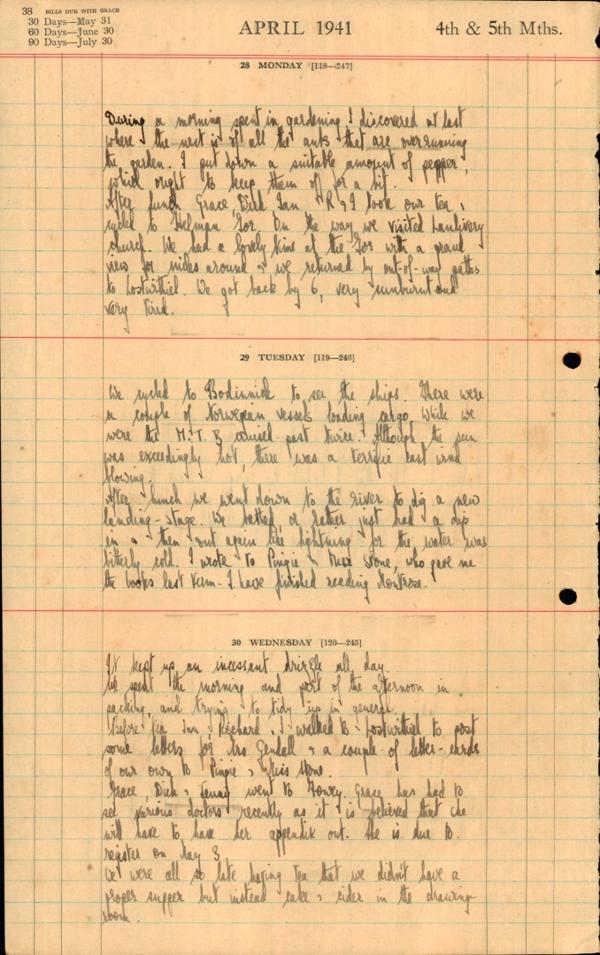 38 BILLS DUE WITH GRACE
30 Days—May 31
60 Days—June 30
90 Days—July 30
APRIL 1941
4th & 5th Mths.
28 MONDAY [118—247]
During a morning spent in gardening I discovered at last
where the nest is of all the ants that are overrunning
the garden. I put down a suitable amount of pepper,
which ought to keep them off for a bit.
After lunch Grace, Dick, Ian, R & I took our tea &
cycled to Helman Tor. On the way we visited Lanlivery
church. We had a lovely time at the Tor with a grand
view for miles around & we returned by out-of-way paths
to Lostwithiel. We got back by 6, very sunburnt and
very tired.
29 TUESDAY [119—246]
We cycled to Bodinnick to see the ships. There were
a couple of Norwegian vessels loading cargo. While we
were the M.T.B cruised past twice. Although the sun
was exceedingly hot, there was a terrific east wind
blowing.
After lunch we went down to the river to dig a new
landing-stage. We bathed, or rather just had a dip
in & then out again like lightning for the water was
bitterly cold. I wrote to Pingie & Miss Stone, who gave me
the books last term. I have finished reading Montrose.
30 WEDNESDAY [120—245]
It kept up an incessant drizzle all day.
We spent the morning and part of the afternoon in
packing, and trying to tidy up in general.
Before tea Ian, Richard & I walked to Lostwithiel to post
some letters for Mrs Gendall & a couple of letter-cards
of our own to Pingie & Miss Stone.
Grace, Dick & Jenny went to Fowey. Grace has had to
see various doctors recently as it is believed that she
will have to have her appendix out. She is due to
register on May 3
We were all so late having tea that we didn't have a
proper supper but instead cake & cider in the drawing
room.